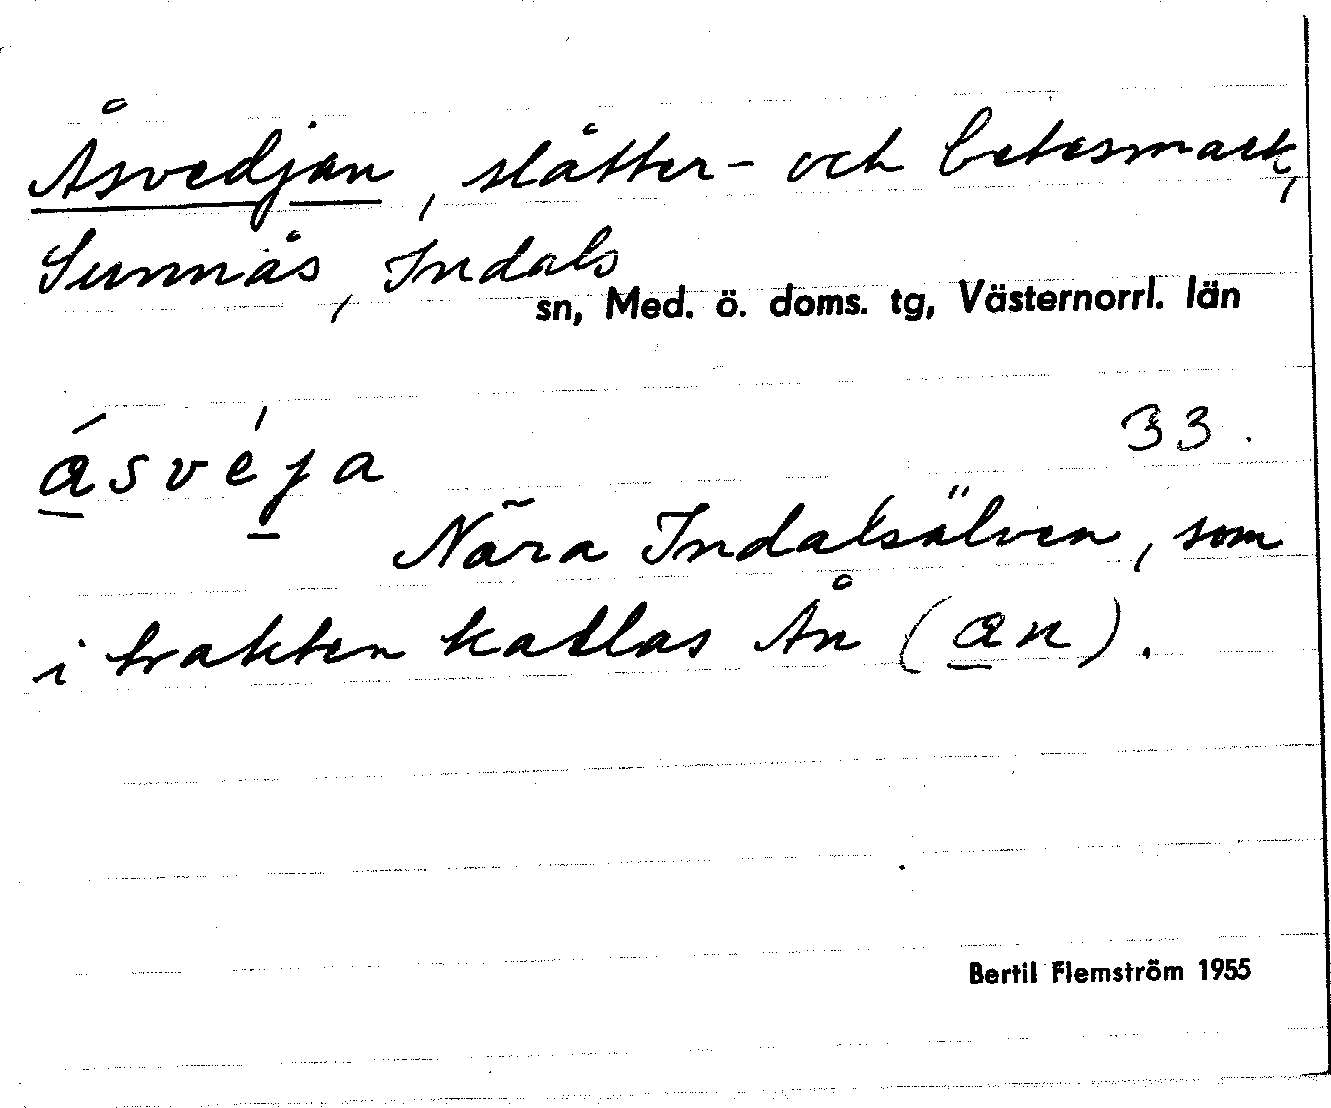 Åsvedjan, slåtter- och betesmark,
Sunnås, Indals
sn, Med. ö. doms. tg, Västernorrl. län
ásvéja 33.
Nära Indalsälven, som
i trakten kallas Ån (an).
Bertil Flemström 1955